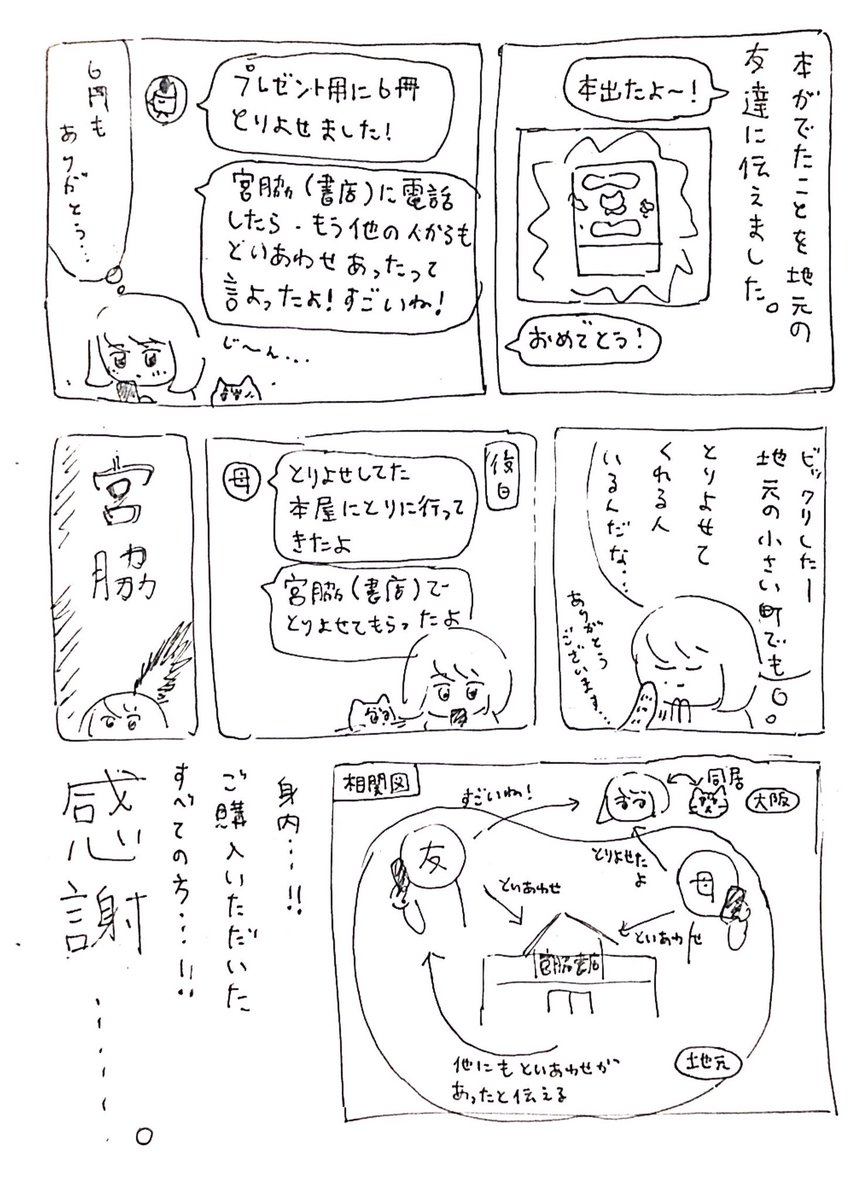 本がでたことを地元の
友達に伝えました。
本出たよ〜!
おめでとう!
プレゼント用に6冊
とりよせました!
宮脇(書店)に電話
したら、もう他の人からも
といあわせあったって
言よったよ!すごいね!
6円も
ありがとう…
じ〜ん…
ビックリしたー
地元の小さい町でも
とりよせて
くれる人
いるんだな…
ありがとう
ございます…
後日
母
とりよせしてた
本屋にとりに行って
きたよ
宮脇(書店)で
とりよせてもらったよ
宮
脇
相関図
すごいね!
同居
大阪
友
とりよせたよ
母
といあわせ
といあわせ
宮脇書店
地元
他にもといあわせが
あったと伝える
身内…!!
ご購入いただいた
すべての方…!!
感謝……。